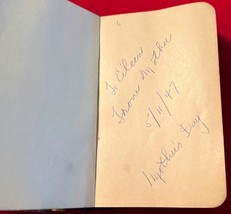 To Eileen
From Mother
5/11/47
Mother's Day